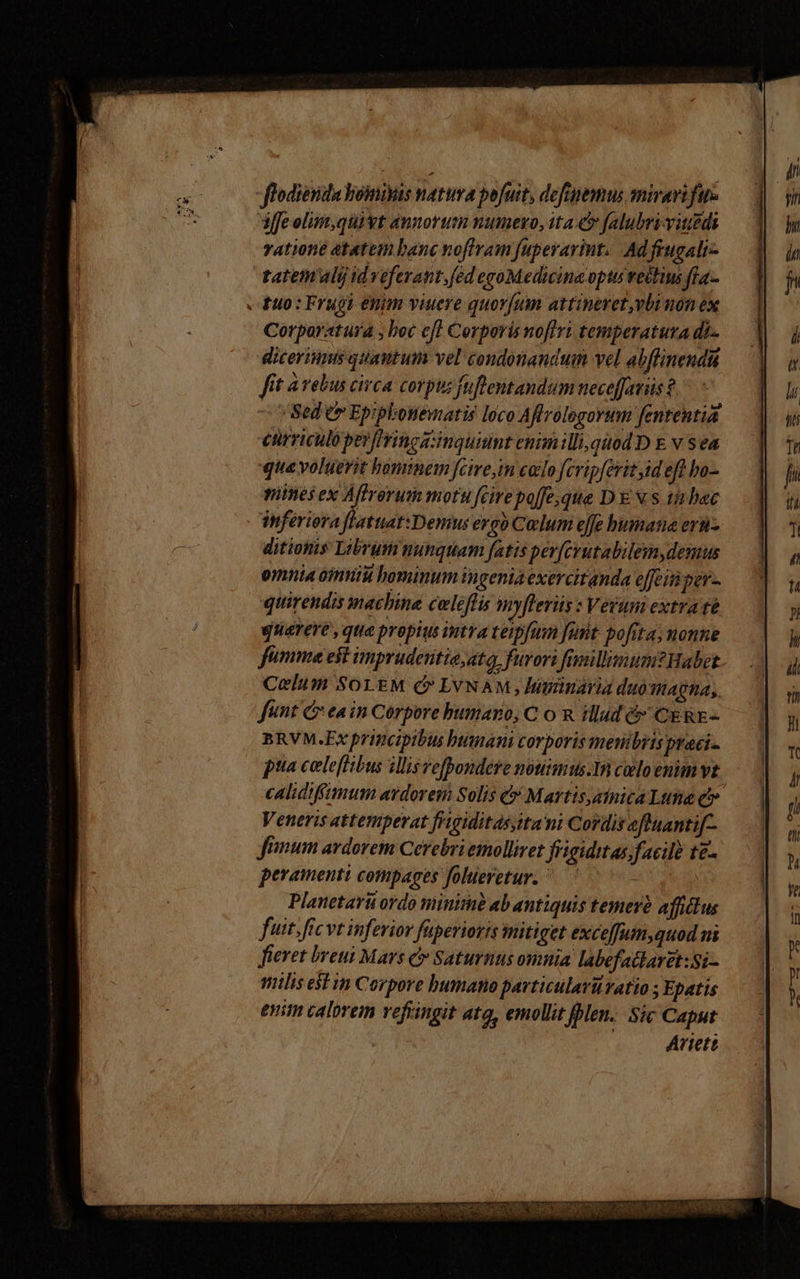 ſtodienda hominis natura poſuit, deſinemus mirari fu-
iſſe olim, qui vt annorum numero, ita & ſalubri viuẽdi
ratione ætatem hanc noſtram ſuperarint. Ad frugali-
tatem alij id referant, ſed ego Medicinæ opus rectius ſta-
tuo: Frugi enim viuere quorſum attineret, vbi non ex
Corporatura, hoc eſt Corporis noſtri temperatura di-
dicerimus quantum vel condonandum vel abſtinendũ
ſit à rebus circa corpus ſuſtentandum neceſſarijs?
Sed & Epiphonematis loco Aſtrologorum ſententiã
curriculò perſtringã: inquiunt enim illi, quòd DEVS ea
quæ voluerit hominem ſcire, in cælo ſcripſerit, id eſt ho-
mines ex Aſtrorum motu ſcire poſſe, quæ DEVS in hæc
inferiora ſtatuat: Demus ergò Cœlum eſſe humanæ eru-
ditionis Librum nunquam ſatis perſcrutabilem, demus
omnia omniũ hominum ingenia exercitanda eſſe in per-
quirendis machinæ cæleſtis myſterijs: Verum extra te
quærere, quæ propius intra teipſum ſunt poſita, nonne
ſummæ eſt imprudentiæ, atq, furori ſimillimum? Habet
Cœlum SOLEM & LVNAM, luminaria duo magna,
ſunt & ea in Corpore humano, COR illud & CERE-
BRVM. Ex principibus humani corporis membris præci-
pua cæleſtibus illis reſpondere nouimus. In cælo enim vt
calidiſsimum ardorem Solis & Martis, amica Lunæ &
Veneris attemperat frigiditas, ita ni Cordis æſtuantiſ-
ſimum ardorem Cerebri emolliret frigiditas, facilè tẽ-
peramenti compages ſolueretur.
Planetarũ ordo minimè ab antiquis temerè affictus
fuit, ſic vt inferior ſuperioris mitiget exceſſum, quod ni
fieret breui Mars & Saturnus omnia labefactarẽt: Si-
milis eſt in Corpore humano particularũ ratio; Epatis
enim calorem refringit atq, emollit ſplen. Sic Caput
Arieti